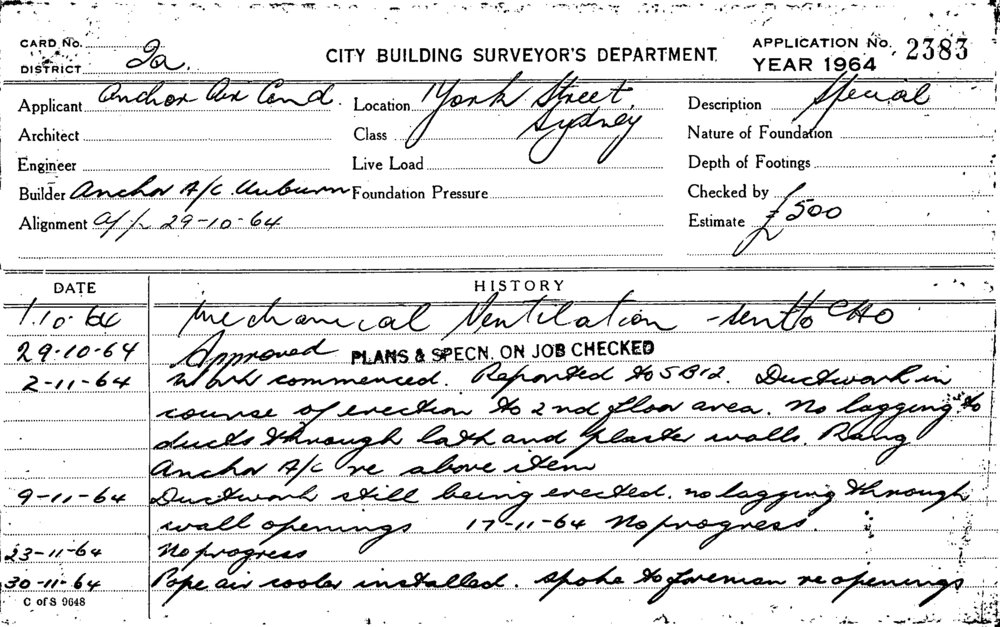 CARD No. CITY BUILDING SURVEYOR'S DEPARTMENT APPLICATION No. 2383
DISTRICT 2a. YEAR 1964
Applicant Anchor Air Cond. Location York Street, Sydney Description Special
Architect Class Nature of Foundation
Engineer Live Load Depth of Footings
Builder Anchor A/C Auburn Foundation Pressure Checked by
Alignment 29-10-64 Estimate £500
DATE HISTORY
1.10.64 Mechanical Ventilation - sent to CHO
29-10-64 Approved PLANS & SPECN. ON JOB CHECKED
2-11-64 Work commenced. Reported to SB12. Ductwork in
course of erection to 2nd floor area. No lagging to
ducts through lath and plaster walls. Rang
Anchor A/C re above item
9-11-64 Ductwork still being erected. no lagging through
wall openings 17-11-64 No progress.
23-11-64 No progress
30-11-64 Pope air cooler installed. Spoke to foreman re openings
C of S 9648